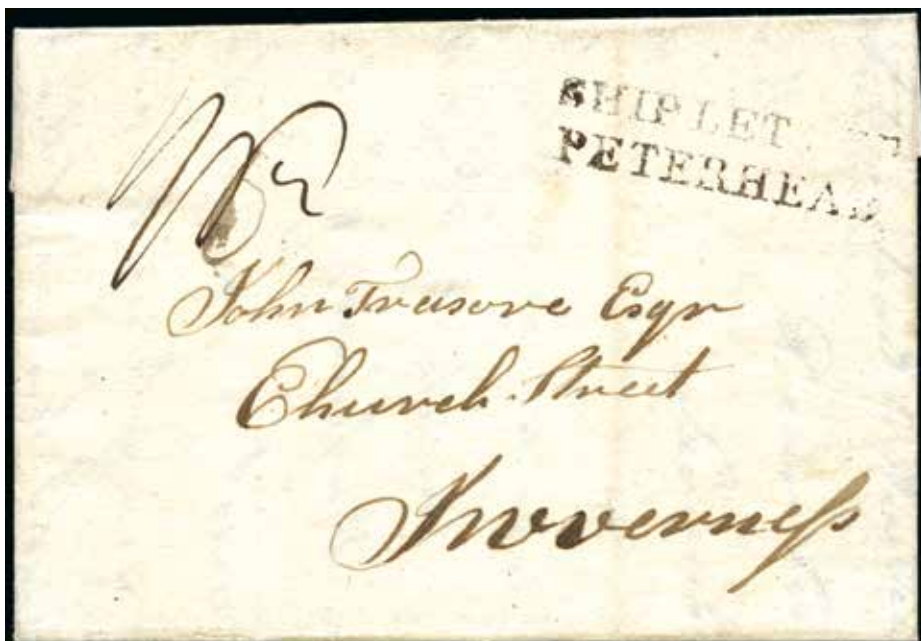 SHIP LETTER
PETERHEAD
John Trasove Esqr
Church Street
Inverness